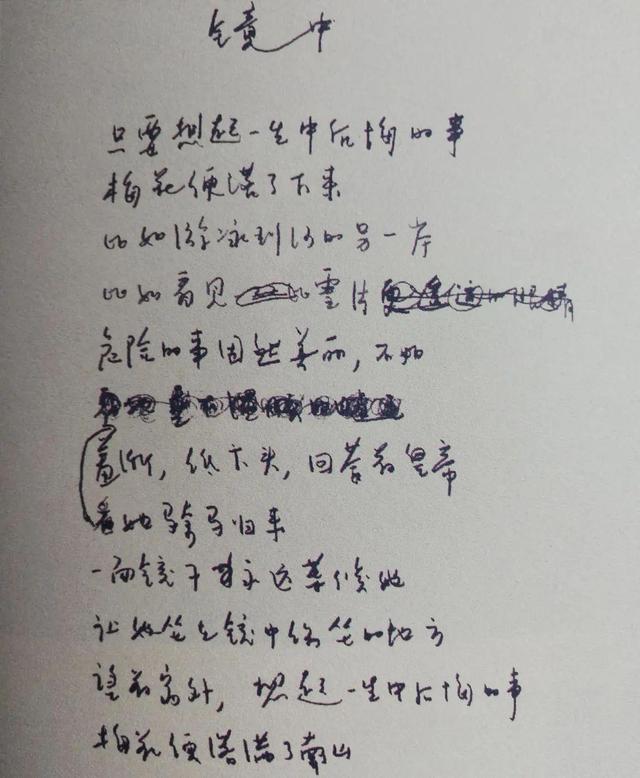 镜中
只要想起一生中后悔的事
梅花便落了下来
比如游泳到河的另一岸
比如看见比雪片
危险的事固然美丽，不如
羞惭，低下头，回答着皇帝
看她骑马归来
一面镜子永远等候她
让她坐镜中坐的地方
望着窗外，想起一生中后悔的事
梅花便落满了南山